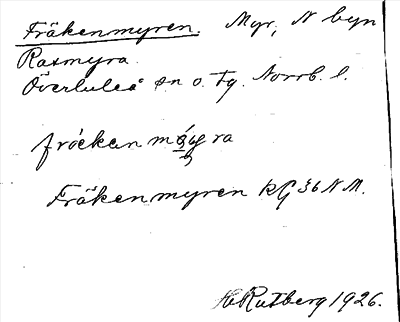 Fräkenmyren. Myr, N byn
Rasmyra.
Överluleå sn o. tg. Norrb. l.
fröckan
Fräkenmyren KG 36 N M.
H. Rutberg 1926.